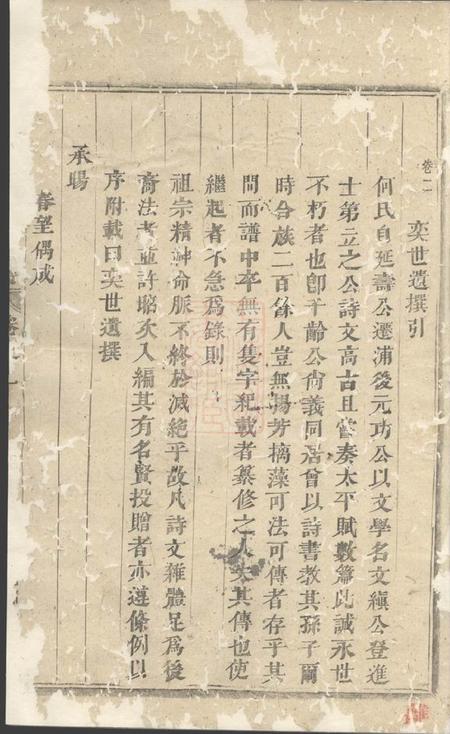 卷二
奕世遺撰引
何氏自延壽公遷浦後元功公以文學名文縝公登進
士第立之公詩文高古且嘗奏太平賦數篇此誠永世
不朽者也卽千齡公尙義同居曾以詩書教其孫子爾
時合族二百餘人豈無揚芳摛藻可法可傳者存乎其
間而譜中卒無有隻字紀載者纂修之人失其傳也使
繼起者不急爲錄則
祖宗精神命脈不終於滅絶乎故凡詩文雜體足爲後
裔法者並許謄次入編其有名賢投贈者亦遵條例以
序附載曰奕世遺撰
承暘
春望偶成